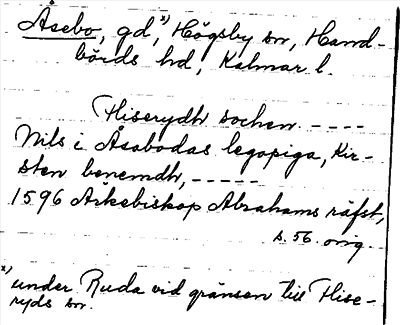 Åsebo, gd,x) Högsby sn, Hand-
börds hd, Kalmar l.
Hiserydh sochen. ----
Nils i Åsabodas legopiga, Kir-
sten benemdh, -----
1596 Ärkebiskop Abrahams räfst,
s. 56. orig.
x) under Ruda vid gränsen till Hise-
ryds sn.